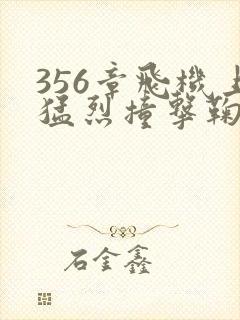 356章飛機上
猛烈撞擊鞠
石金鑫